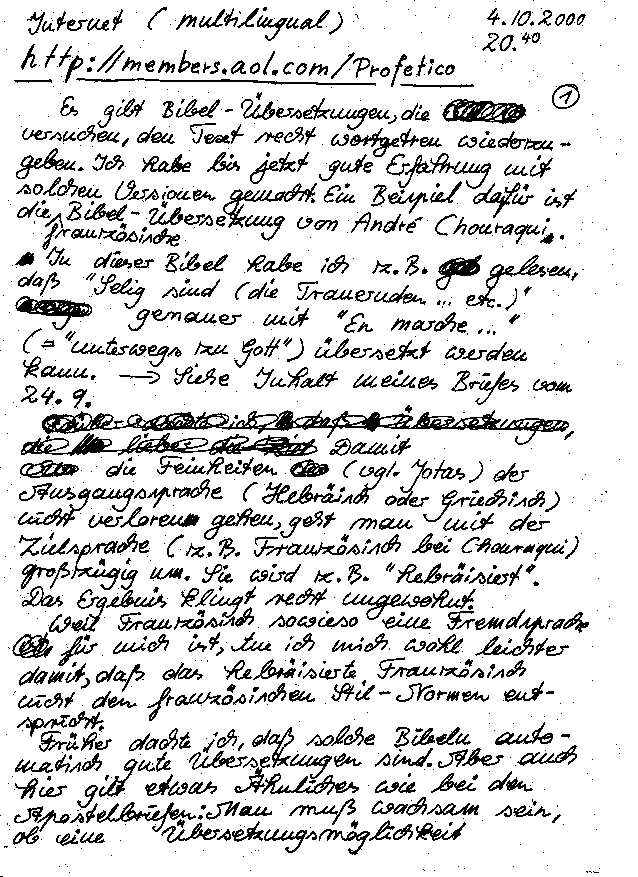 Internet (multilingual) 4.10.2000
20.40
http://members.aol.com/Profetico
1
Es gibt Bibel-Übersetzungen, die
versuchen, den Text recht wortgetreu wiederzu-
geben. Ich habe bis jetzt gute Erfahrung mit
solchen Versionen gemacht. Ein Beispiel dafür ist
die Bibel-Übersetzung von André Chouraqui.
französische
In dieser Bibel habe ich z.B. gelesen,
daß "Selig sind (die Trauernden... etc.)"
genauer mit "En marche..."
(= "unterwegs zu Gott") übersetzt werden
kann. → Siehe Inhalt meines Briefes vom
24.9.
Damit
die Feinheiten (vgl. Jotas) der
Ausgangssprache (Hebräisch oder Griechisch)
nicht verloren gehen, geht man mit der
Zielsprache (z.B. Französisch bei Chouraqui)
großzügig um. Sie wird z.B. "hebräisiert".
Das Ergebnis klingt recht ungewohnt.
Weil Französisch sowieso eine Fremdsprache
für mich ist, tue ich mich wohl leichter
damit, daß das hebräisierte Französisch
nicht den französischen Stil-Normen ent-
spricht.
Früher dachte ich, daß solche Bibeln auto-
matisch gute Übersetzungen sind. Aber auch
hier gilt etwas Ähnliches wie bei den
Apostelbriefen: Man muß wachsam sein,
ob eine Übersetzungsmöglichkeit